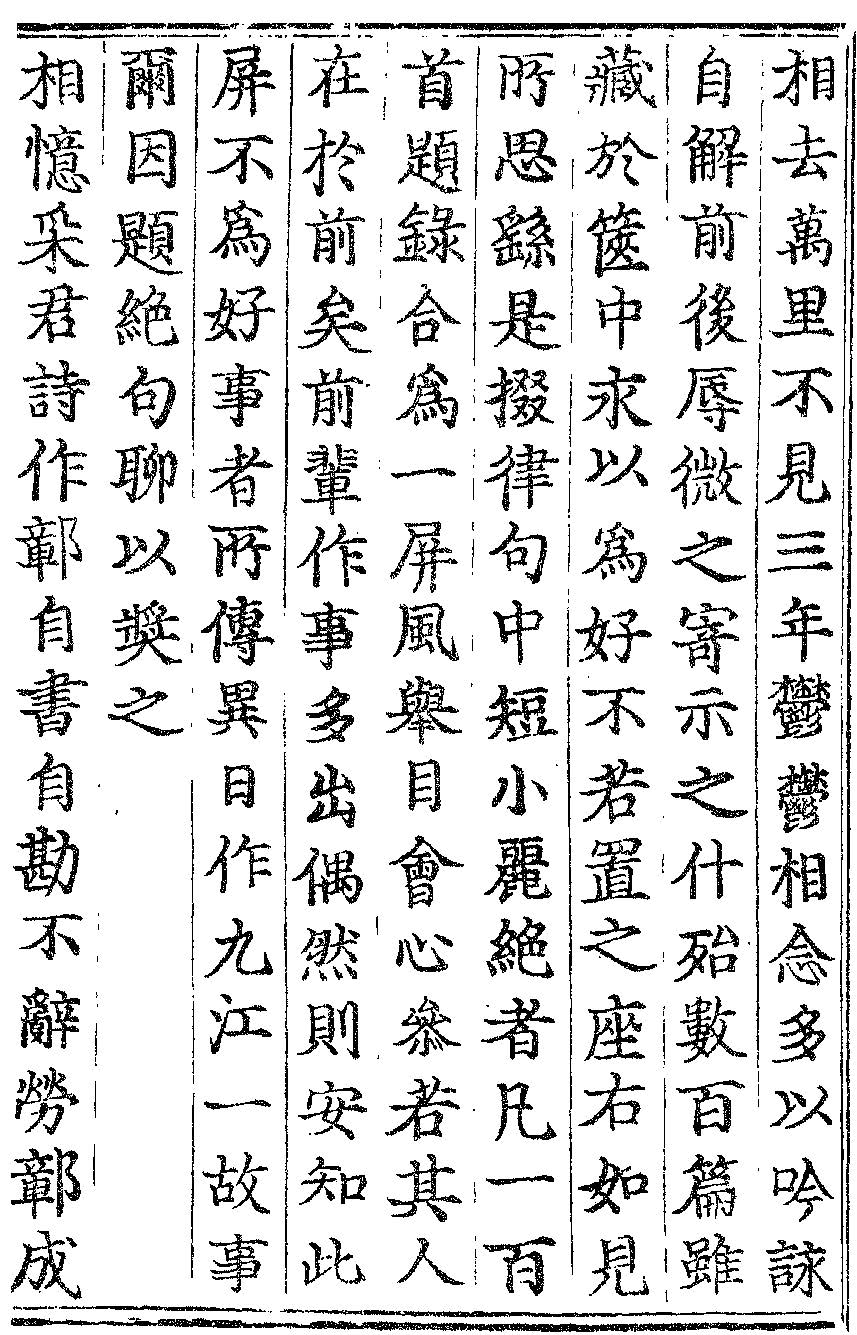 相去萬里不見三年鬱鬱相念多以吟詠
自解前後辱微之寄示之什殆數百篇雖
藏於篋中永以爲好不若置之座右如見
所思繇是掇律句中短小麗絶者凡一百
首題錄合爲一屏風舉目會心參若其人
在於前矣前輩作事多出偶然則安知此
屏不爲好事者所傳異日作九江一故事
爾因題絶句聊以奬之
相憶采君詩作鄣自書自勘不辭勞鄣成